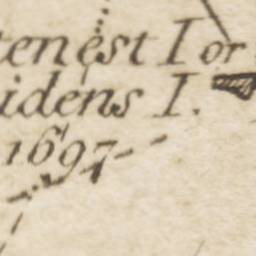 tenest I or
idens I.
1697